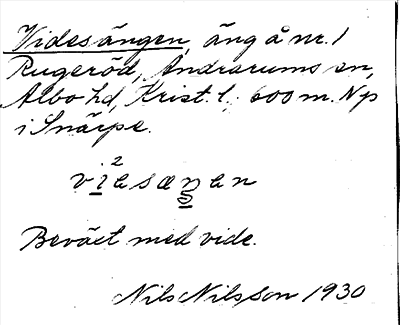 Videsängen, äng å nr. 1
Rugeröd, Andrarums sn,
Albo hd, Krist. l. 600 m. N p
i Snärpe.
vi²esæŋen
Beväxt med vide.
Nils Nilsson 1930